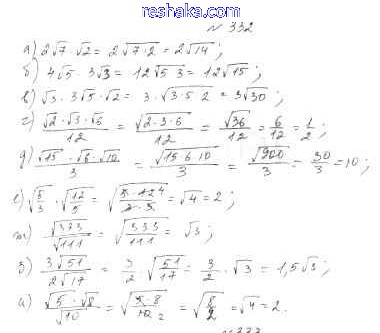 reshaka.com
№ 332
а) 2√7·√2 = 2√(7·2) = 2√14;
б) 4√5·3√3 = 12√(5·3) = 12√15;
в) √3·3√5·√2 = 3·√(3·5·2) = 3√30;
г) (√2·√3·√6)/12 = √(2·3·6)/12 = √36/12 = 6/12 = 1/2;
д) (√15·√6·√10)/3 = √(15·6·10)/3 = √900/3 = 30/3 = 10;
е) √(5/3)·√(12/5) = √((5·12 4)/(3·5)) = √4 = 2;
ж) √333/√111 = √(333/111) = √3;
з) 3√51/2√17 = 3/2·√(51/17) = 3/2·√3 = 1,5√3;
и) (√5·√8)/√10 = √((5·8)/(10 2)) = √(8/2) = √4 = 2.